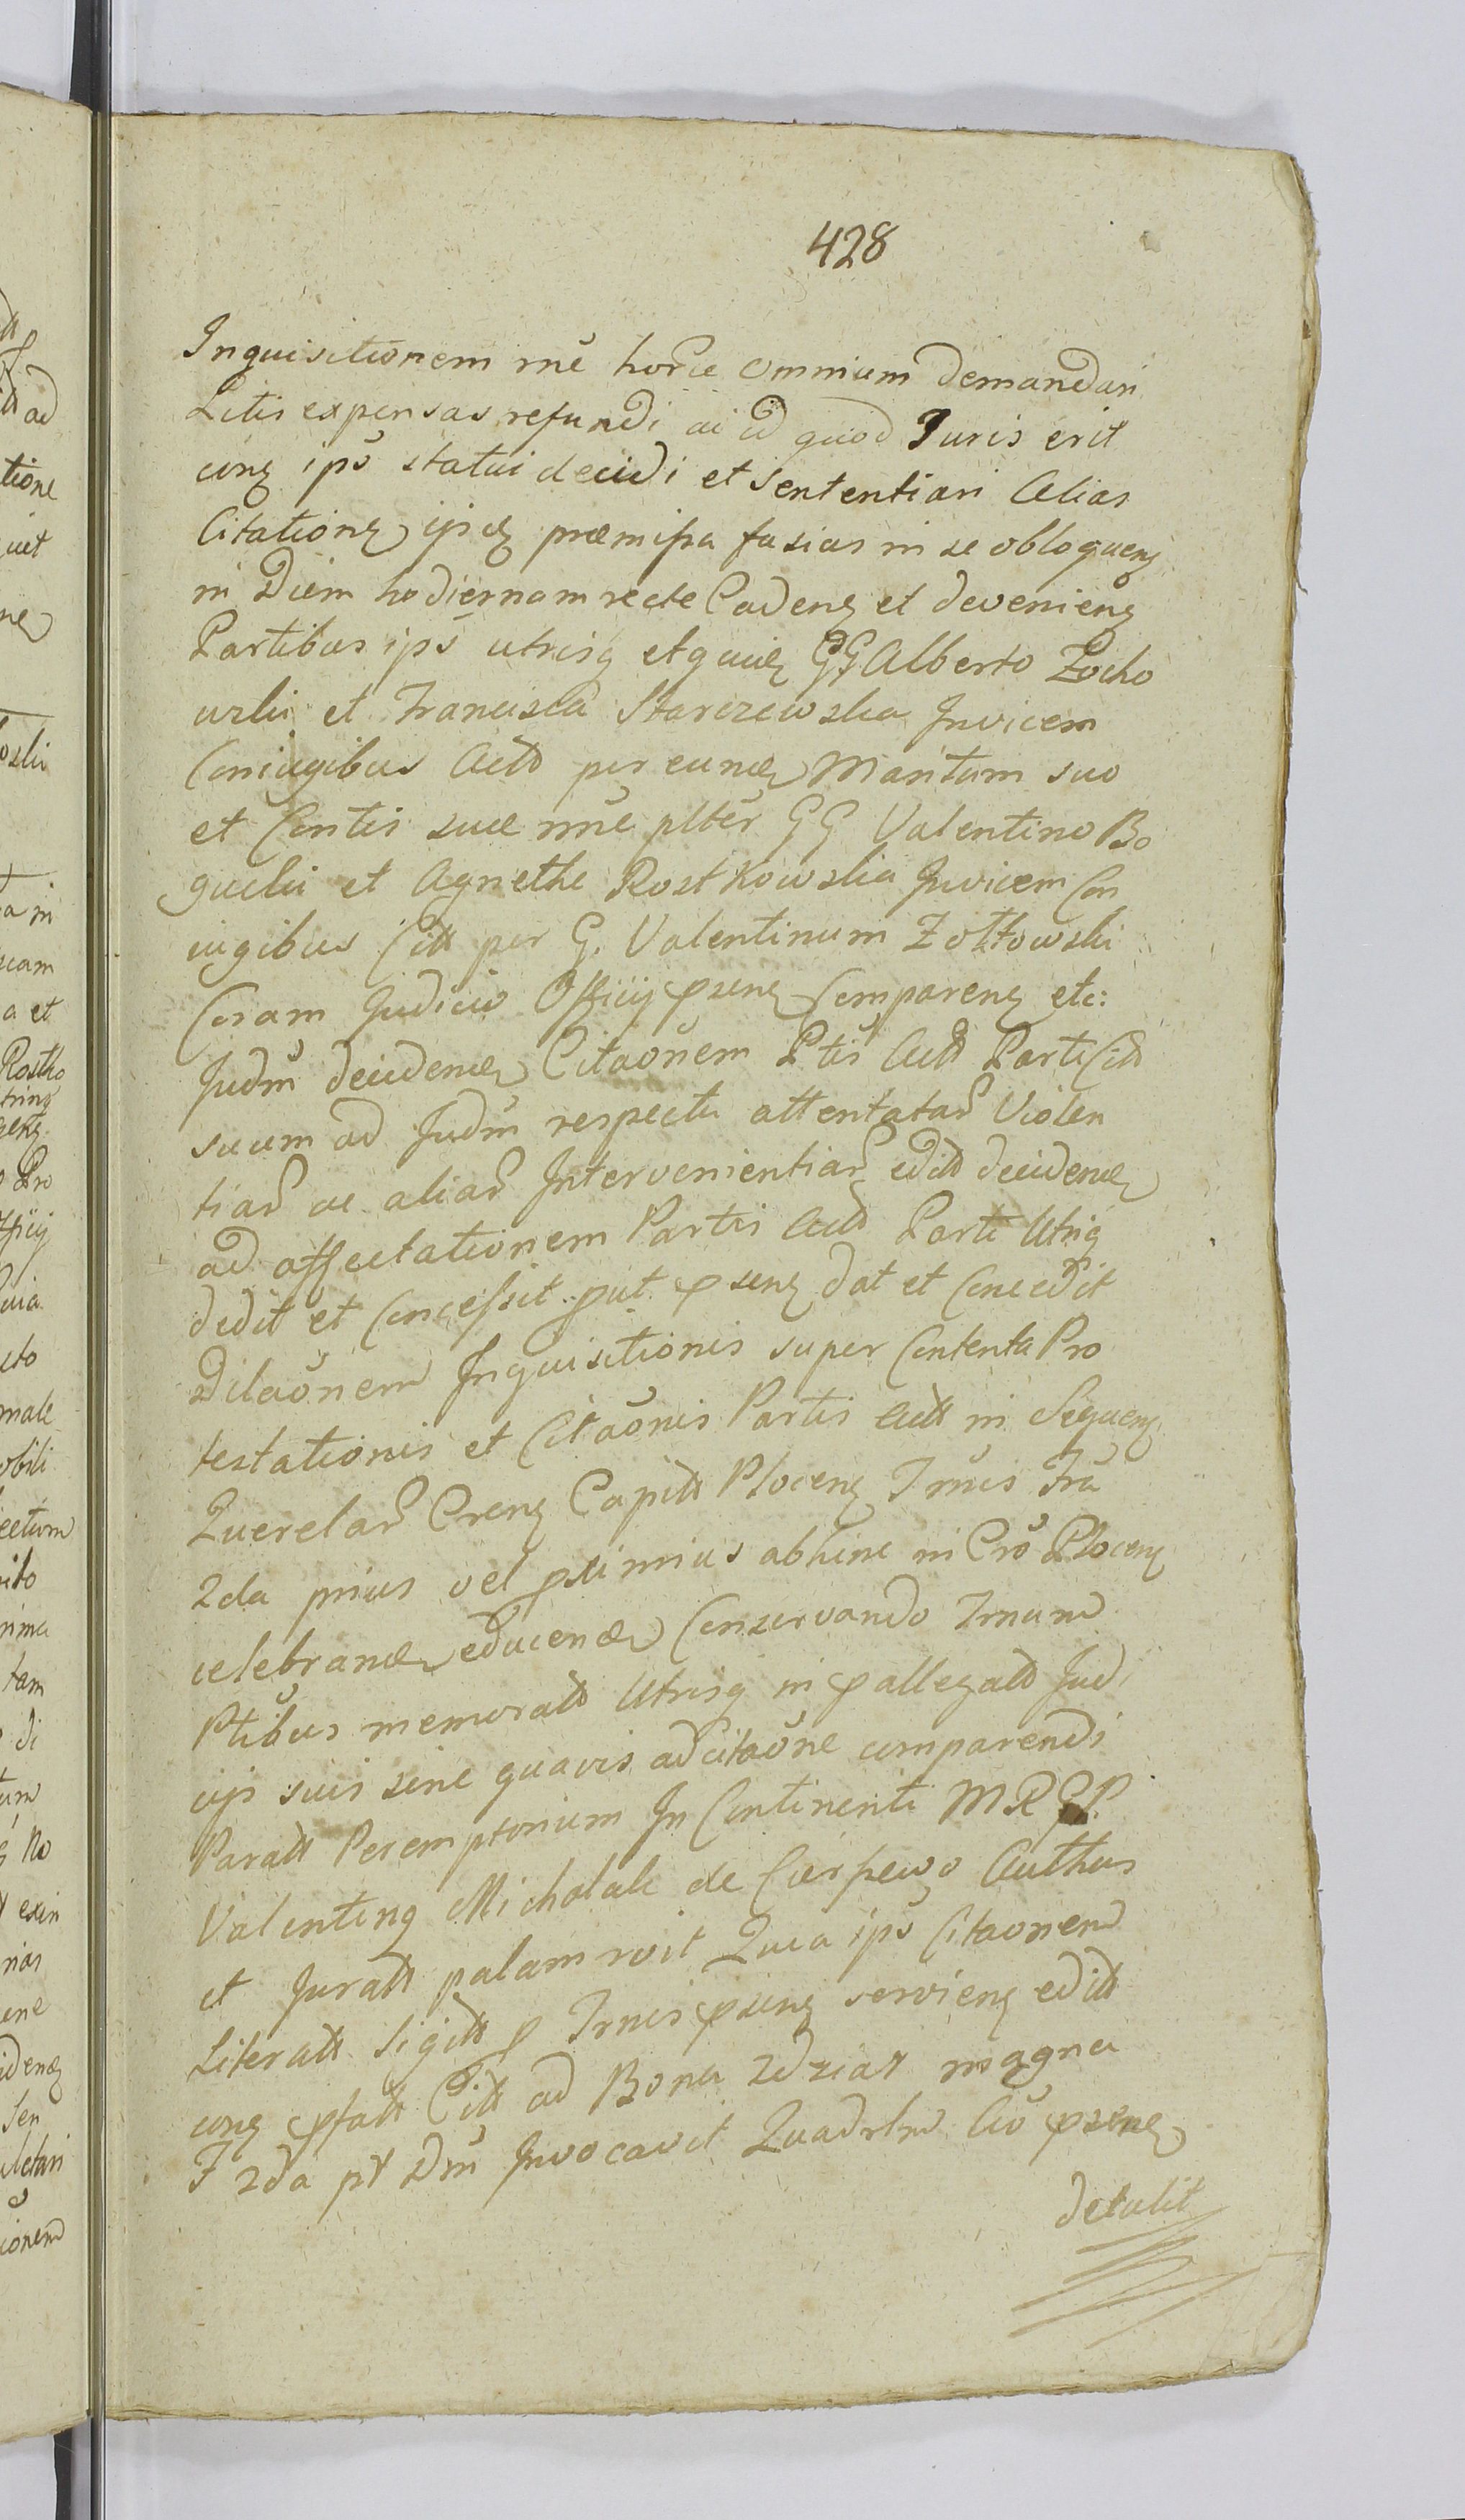 428
Inquisitionem rnē horūe omnium demandari
Litis expensas refundi ac id quod Juris erit
cirq ipō statui decidi et sententiari Alias
Citationeq ipsq præmissa fusius in se obloquenq
in Diem hodiernam recte Cadenq et devenienq
Partibus ipō utrisq et quidē GG Alberto Zocho
wski et Francisca Starczewska Invicem
Coniugibus Actt per eundē Maritum suo
et Contis suæ nnē plter GG Valentino Bo
gucki et Agnethe Rostkowska Invicem Con
iugibus Citt per G. Valentinum Zołtowski
Coram Judicio Officij pseneq Comparenq etc:
Judm̄ decidendē Citaōnem Ptis Actt Parti Citt
suum ad Judm̄ respectu attentatar̄ Violen
tiar̄ ac aliar̄ Intervenientiar̄ editt decidendē
ad affectationem Partis Actt Parti Utriq
dedit et Concessit put psenq dat et Concedit
Dilaōnem Inquisitionis super Contenta Pro
testationis et Citaōnis Partis Actt in Sequenq
Querelar̄ Crenq Capitt Plocenq Trnis Fra
2da prius vel pximius abhinc in Cro Plocenq
celebrandē educendē Conservando Trnum
Ptibus memoratt Utrisq in pallegatt Judi
cijs suis sine quavis adcitaōne comparendi
Paratt Peremptorium In Continenti MRGP
Valentinq Michalak de Cierpewo Authus
et Juratt palam rvit Quia ipō Citaonem
Literatt Sigitt p Trnis psenq servienq editt
conq pfatt Citt ad Bona Zdziar magna
F 2da pt Dm̄ Invocavit Quadrlm Aō psenq
detulit